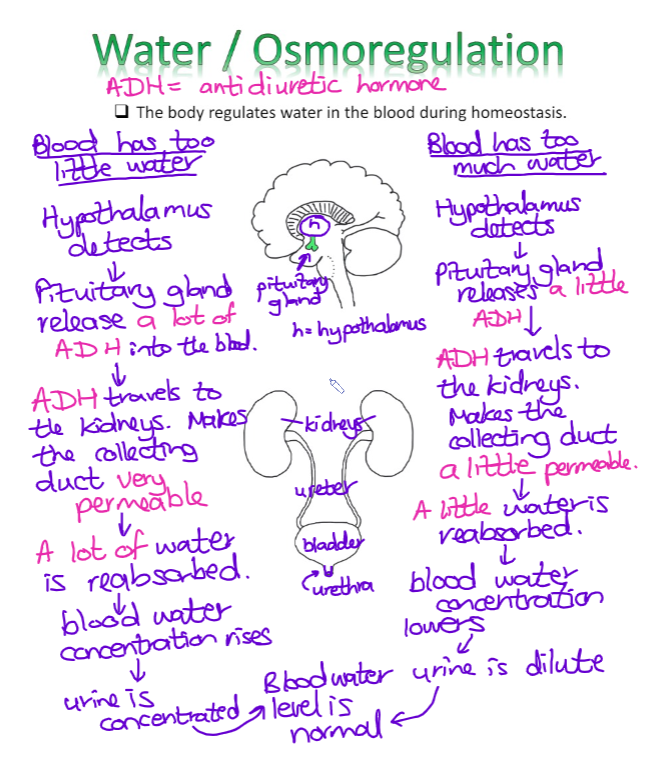 Water / Osmoregulation
ADH = antidiuretic hormone
❑ The body regulates water in the blood during homeostasis.
Blood has too
little water
Hypothalamus
detects
↓
Pituitary gland
release a lot of
ADH into the blood.
↓
ADH travels to
the kidneys. Makes
the collecting
duct very
permeable
↓
A lot of water
is reabsorbed.
↓
blood water
concentration rises
↓
urine is
concentrated
h
pituitary
gland
h= hypothalamus
kidneys
ureter
bladder
urethra
Blood has too
much water
Hypothalamus
detects
↓
Pituitary gland
releases a little
ADH ↓
ADH travels to
the kidneys.
Makes the
collecting duct
a little permeable.
↓
A little water is
reabsorbed.
↓
blood water
concentration
lowers
↓
urine is dilute
Blood water
level is
normal